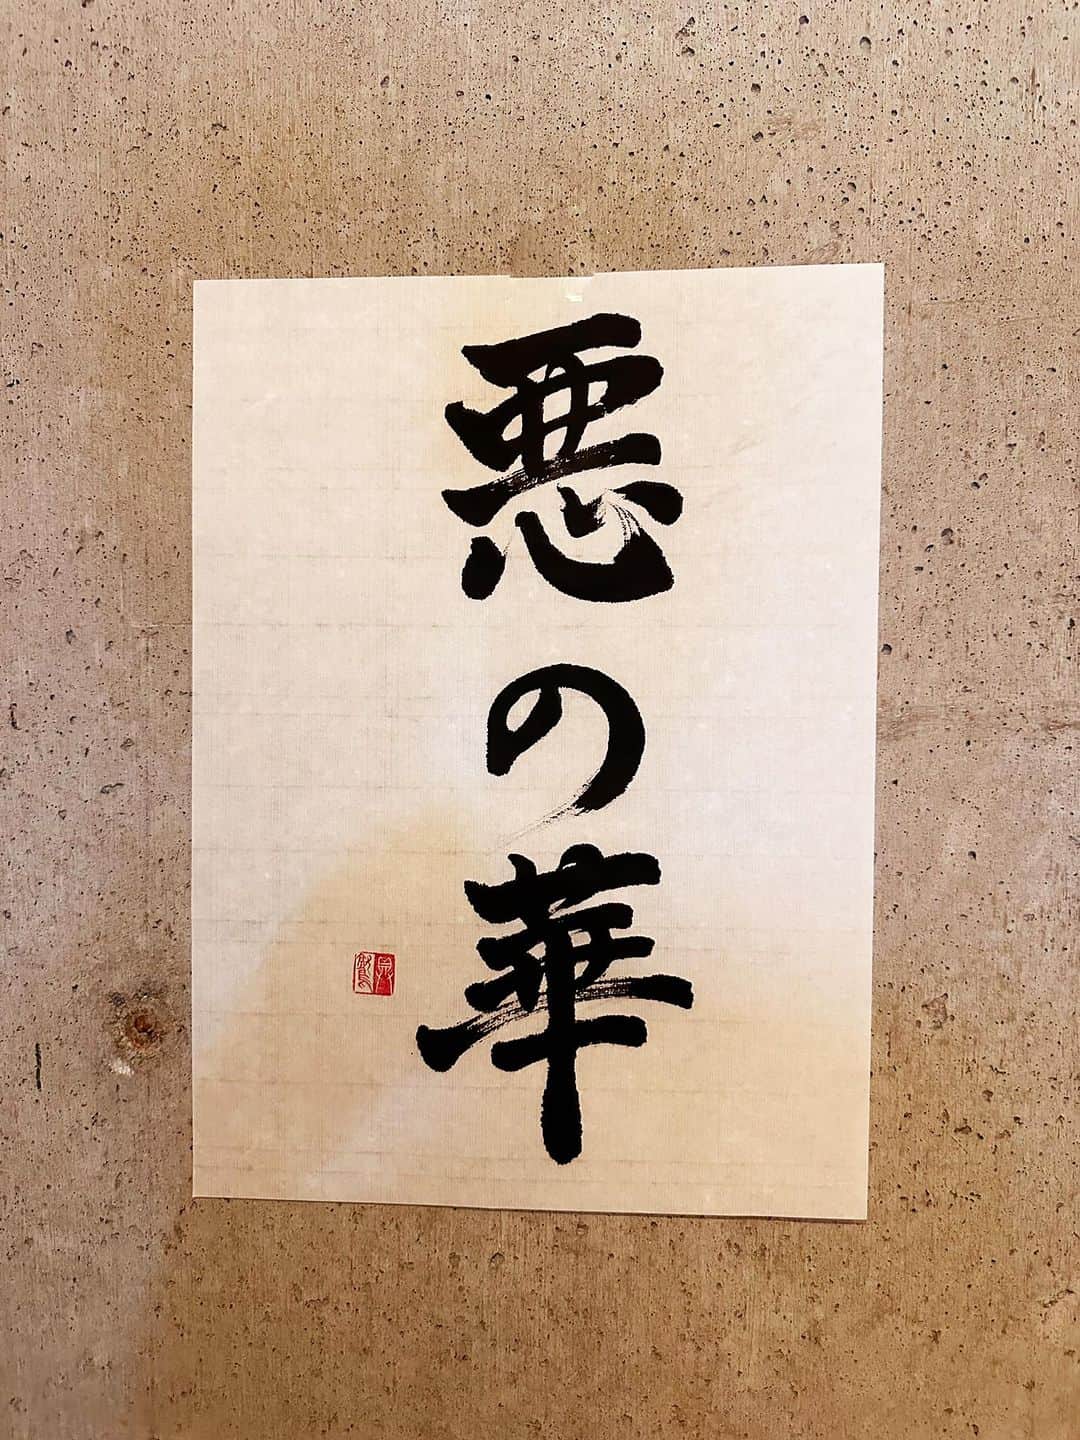 悪の華